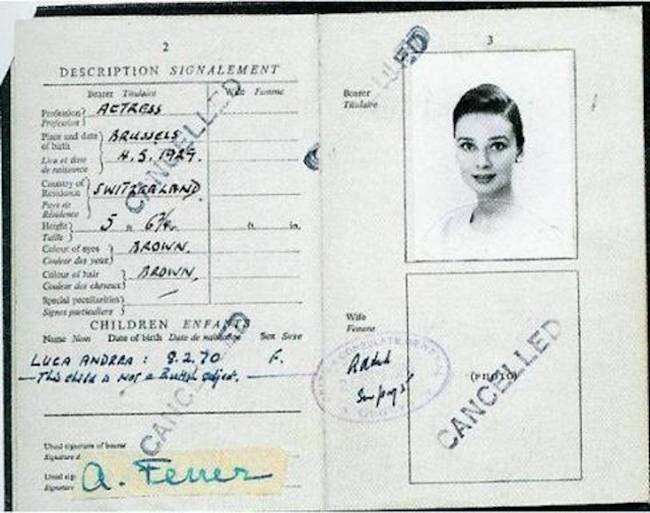 2
DESCRIPTION SIGNALEMENT
Bearer Titulaire Wife Femme
Profession ACTRESS
Profession
Place and date of birth BRUSSELS
4.5.1929.
Lieu et date de naissance
Country of Residence SWITZERLAND
Pays de Résidence
Height 5 ft. 6¾ in. ft. in.
Taille
Colour of eyes BROWN.
Couleur des yeux
Colour of hair BROWN.
Couleur des cheveux
Special peculiarities
Signes particuliers
CHILDREN ENFANTS
Name Nom Date of birth Date de naissance Sex Sexe
LUCA ANDREA : 8.2.70 F.
This child is not a British subject.
Usual signature of bearer
Signature
Usual
Signature
A. Ferrer
CANCELLED
CANCELLED
3
CANCELLED
Bearer
Titulaire
Wife
Femme
CONSULATE
(PHOTO)
CANCELLED